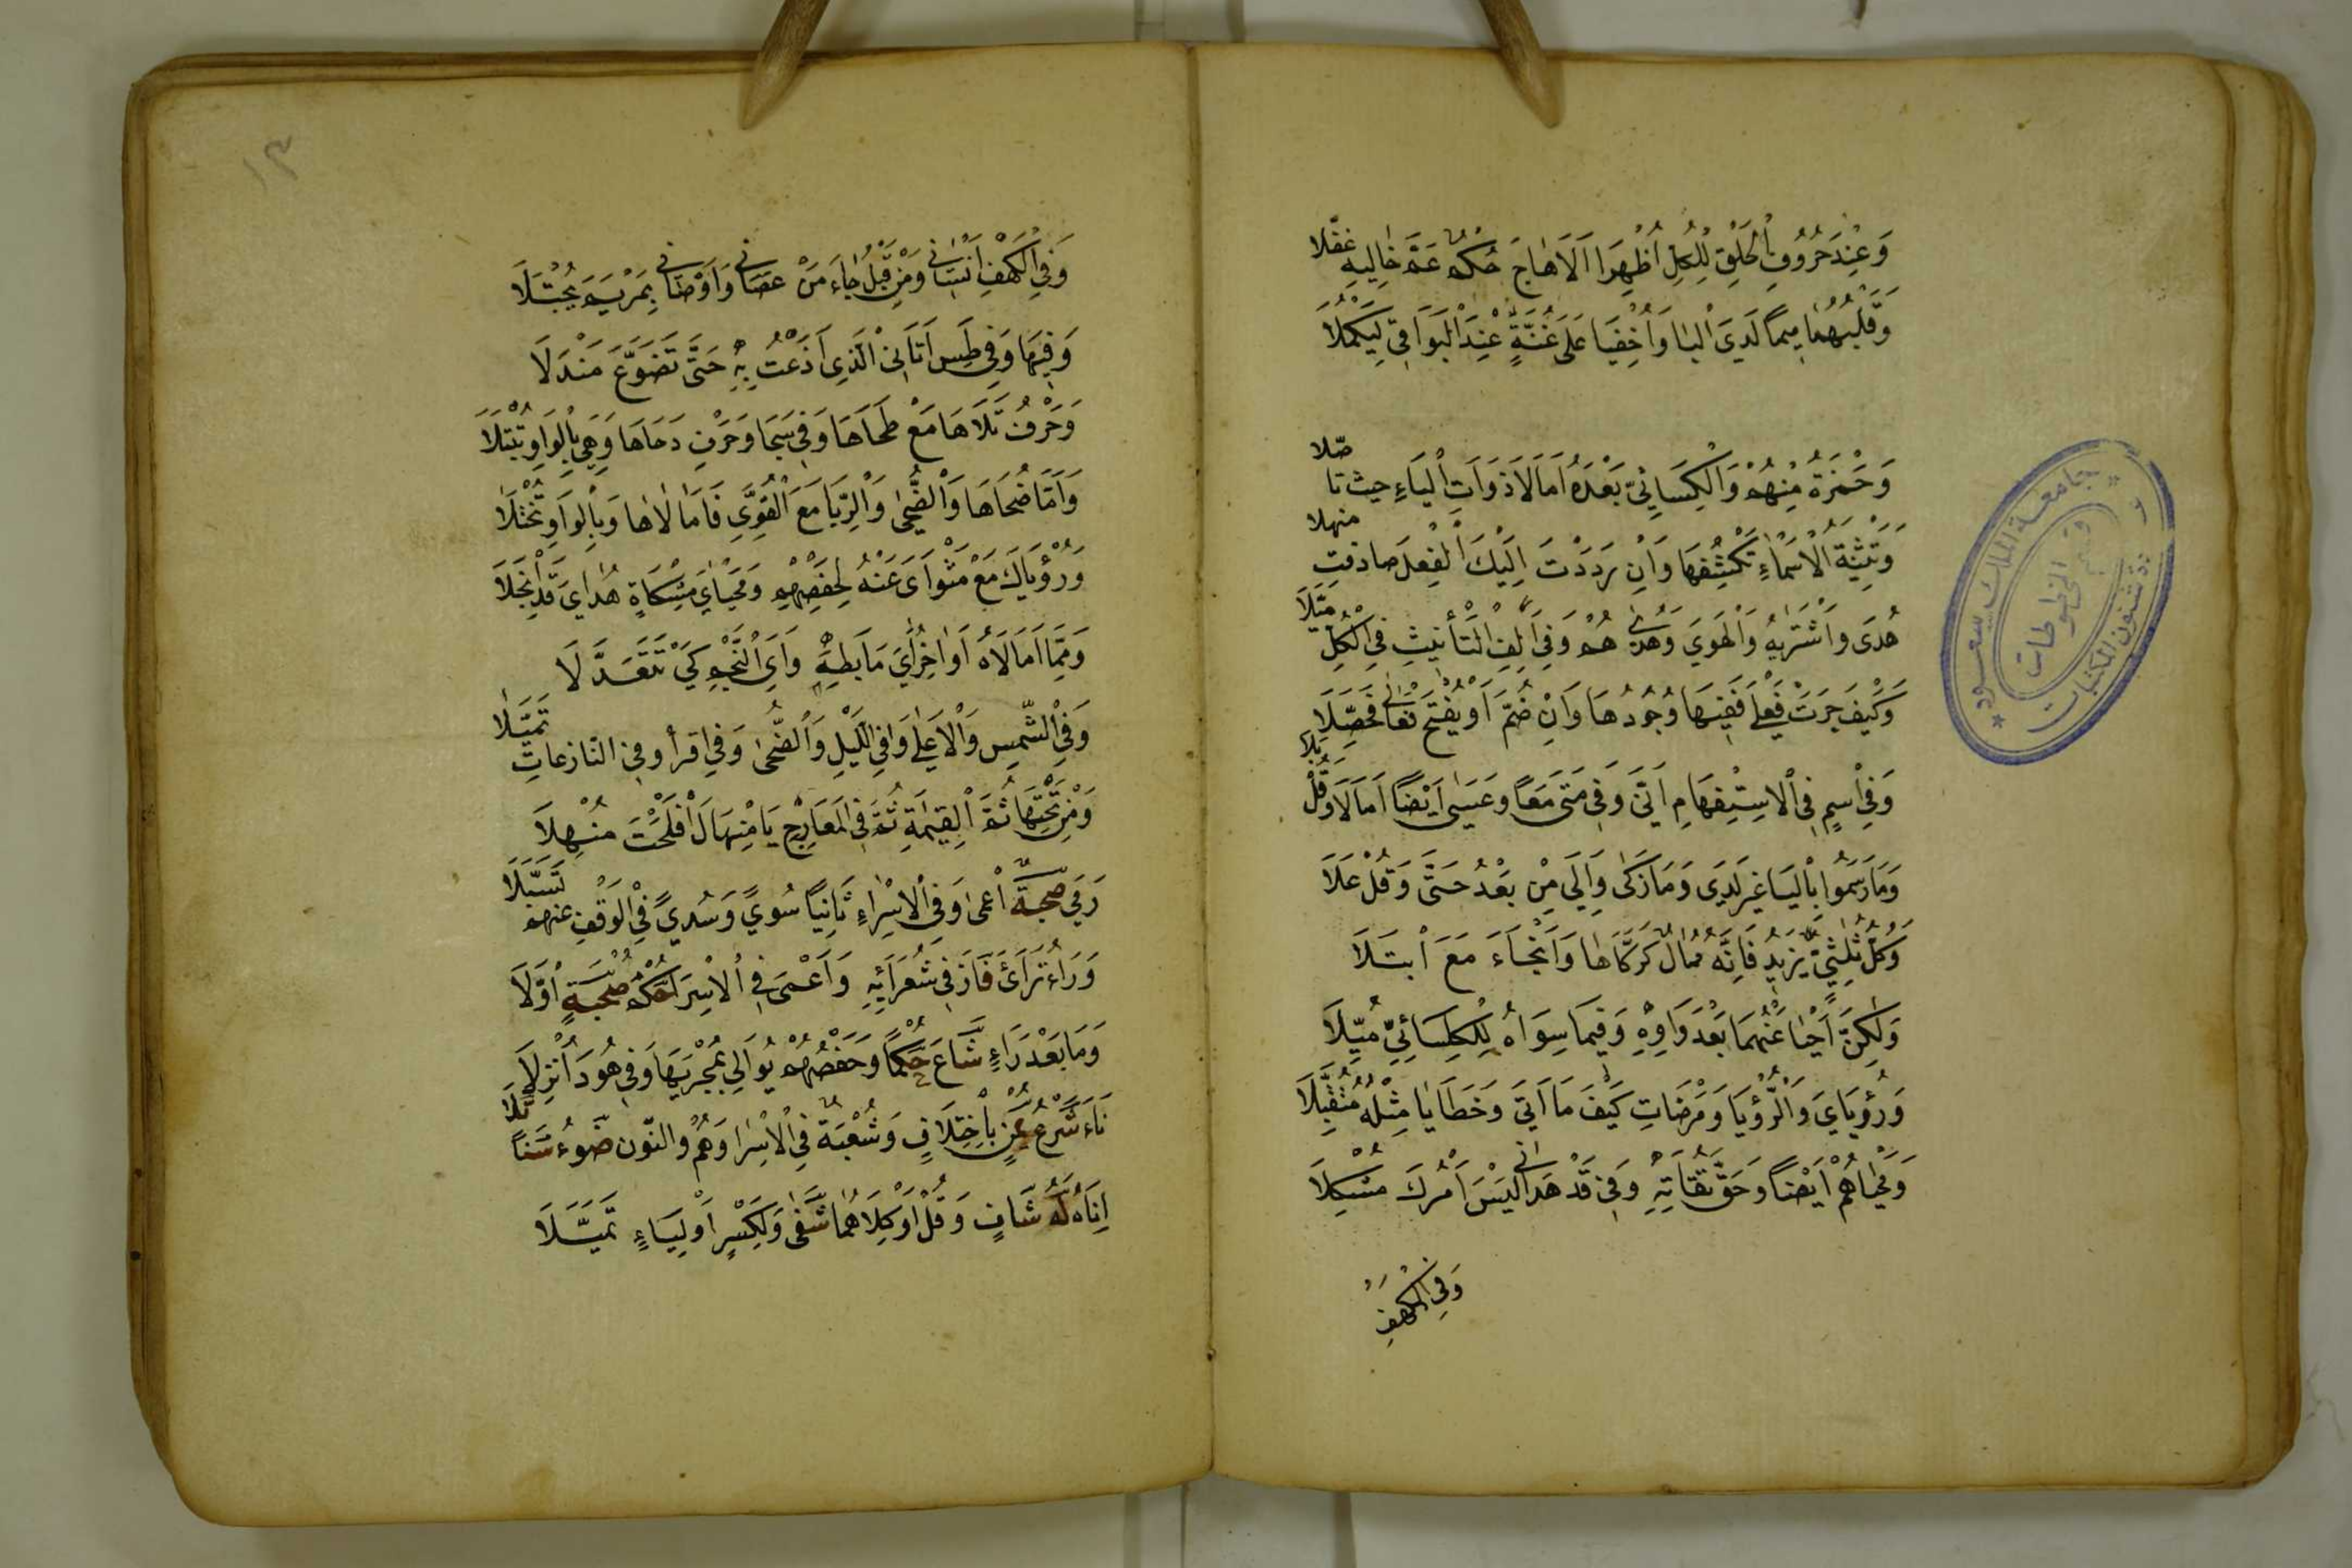 وَعِنْدَ حُرُوفِ الْحَلْقِ لِلْكُلِّ اُظْهِرَا اَلَا هَاجَ حُكْمٌ عَمَّ خَالِيهِ غفّلا
وَقَلْبُهُمَا مِيمًا لَدَى الْبَا وَاُخْفِيَا عَلَى غُنَّةٍ عِنْدَ الْبَوَاقِى لِيَكْمُلَا
وَحَمْزَةُ مِنْهُمْ وَالْكِسَائِيُّ بَعْدَهُ اَمَالَا ذَوَاتِ الْيَاءِ حيث تاصّلا
وَتَثْنِيَةُ الْاَسْمَاءِ تَكْشِفُهَا وَاِنْ رَدَدْتَ اِلَيْكَ الْفِعْلَ صادفتِ منهلا
هُدَى وَاشْتَرَيهُ وَالْهَوَي وَهُدَيهُمْ وَفِى اَلِفِ التَّأْنِيثِ فِى الْكُلِّ مَيَّلَا
وَكَيْفَ جَرَتْ فَعْلَى فَفِيهَا وُجُودُهَا وَاِنْ ضُمَّ اَوْ يُفْتَحْ فُعَالَى فَحَصِّلَا
وَفِي اسْمٍ فِى الْاِسْتِفْهَامِ اَنَّى وَفِى مَتَى مَعًا وَعَسَى اَيْضًا اَمَالَا وَقُلْ بَلَا
وَمَا رَسَمُوا بِالْيَاءِ غَيْرَ لَدَى وَمَا زَكَى وَاِلَى مِنْ بَعْدُ حَتَّى وَقُلْ عَلَا
وَكُلُّ ثُلَثِيٍّ يَزِيدُ فَاِنَّهُ مُمَالٌ كَزَكَّاهَا وَاَنْجَاءَ مَعَ ابْتَلَا
وَلَكِنَّ اَحْيَا عَنْهُمَا بَعْدَ وَاوِهِ وَفِيمَا سِوَاهُ لِلْكِسَائِيِّ مُيِّلَا
وَرُؤْيَايَ وَالرُّؤْيَا وَمَرْضَاتِ كَيْفَ مَا اَتَى وَخَطَايَا مِثْلُهُ مُتَقَبِّلَا
وَمَحْيَاهُمْ اَيْضًا وَحَقَّ تُقَاتِهِ وَفِى قَدْ هَدَانِى لَيْسَ اَمْرُكَ مُشْكِلَا
وَفِى الْكَهْفِ
١٣
وَفِى الْكَهْفِ اَنْسَانِى وَمِنْ قَبْلُ جَاءَ مَنْ عَصَانِى وَاَوْصَانِى بِمَرْيَمَ يُجْتَلَا
وَفِيهَا وَفِى طس اَتَانِىَ الَّذِى اَذَعْتُ بِهِ حَتَّى تَضَوَّعَ مَنْدَلَا
وَحَرْفُ تَلَاهَا مَعْ طَحَاهَا وَفِى سَجَا وَحَرْفِ دَحَاهَا وَهِىَ بِالْوَاوِ تُبْتَلَا
وَاَمَّا ضُحَاهَا وَالضُّحَى وَالرِّبَا مَعَ الْقُوَى فَاَمَالَاهَا وَبِالْوَاوِ تُخْتَلَا
وَرُؤْيَاكَ مَعْ مَثْوَاىَ عَنْهُ لِحَفْصِهِمْ وَمَحْيَايَ مِشْكَاةٍ هُدَايَ قَدِ انْجَلَا
وَمِمَّا اَمَالَاهُ اَوَاخِرُ اَيِ مَا بِطه وَاَىِ النَّجْمِ كَيْ تَتَعَدَّلَا
وَفِى الشَّمْسِ وَالْاَعْلَى وَفِى اللَّيْلِ وَالضُّحَى وَفِى اقرأ وفى النّازعاتِ تَمَيَّلَا
وَمِنْ تَحْتِهَا ثُمَّ الْقِيمَةِ ثُمَّ فِى الْمَعَارِجِ يَا مِنْهَالُ اَفْلَحْتَ مُنْهِلَا
رَمَي صحبةٌ اَعْمَى وَفِى الْاِسْرَاءِ ثَانِيًا سُوًي وَسُدًي فِى الْوَقْفِ عنهم تَسَبَّلَا
وَرَاءُ تَرَاءَى فَازَ فِى شُعَرَائِهِ وَاَعْمَى فِى الْاِسْرَا حُكْمُ صُحْبَةٍ اَوَّلَا
وَمَا بَعْدَ رَاءٍ شَاعَ حُكْمًا وَحَفْصُهُمْ يُوَالِى بِمَجْرَيهَا وَفِى هُودَ اُنْزِلَا
نَاءَ شَرْعُ يُمْنٍ بِاخْتِلَافٍ وَشُعْبَةٌ فِى الْاِسْرَا وَهُمْ والنّون ضَوْءُ سَنًا تَلَا
اِنَاهُ لَهُ شَافٍ وَقُلْ اَوْ كِلَاهُمَا شَفَى وَلِكَسْرٍ اَوْ لِيَاءٍ تَمَيَّلَا
جامعة الملك سعود
قسم المخطوطات
شئون المكتبات